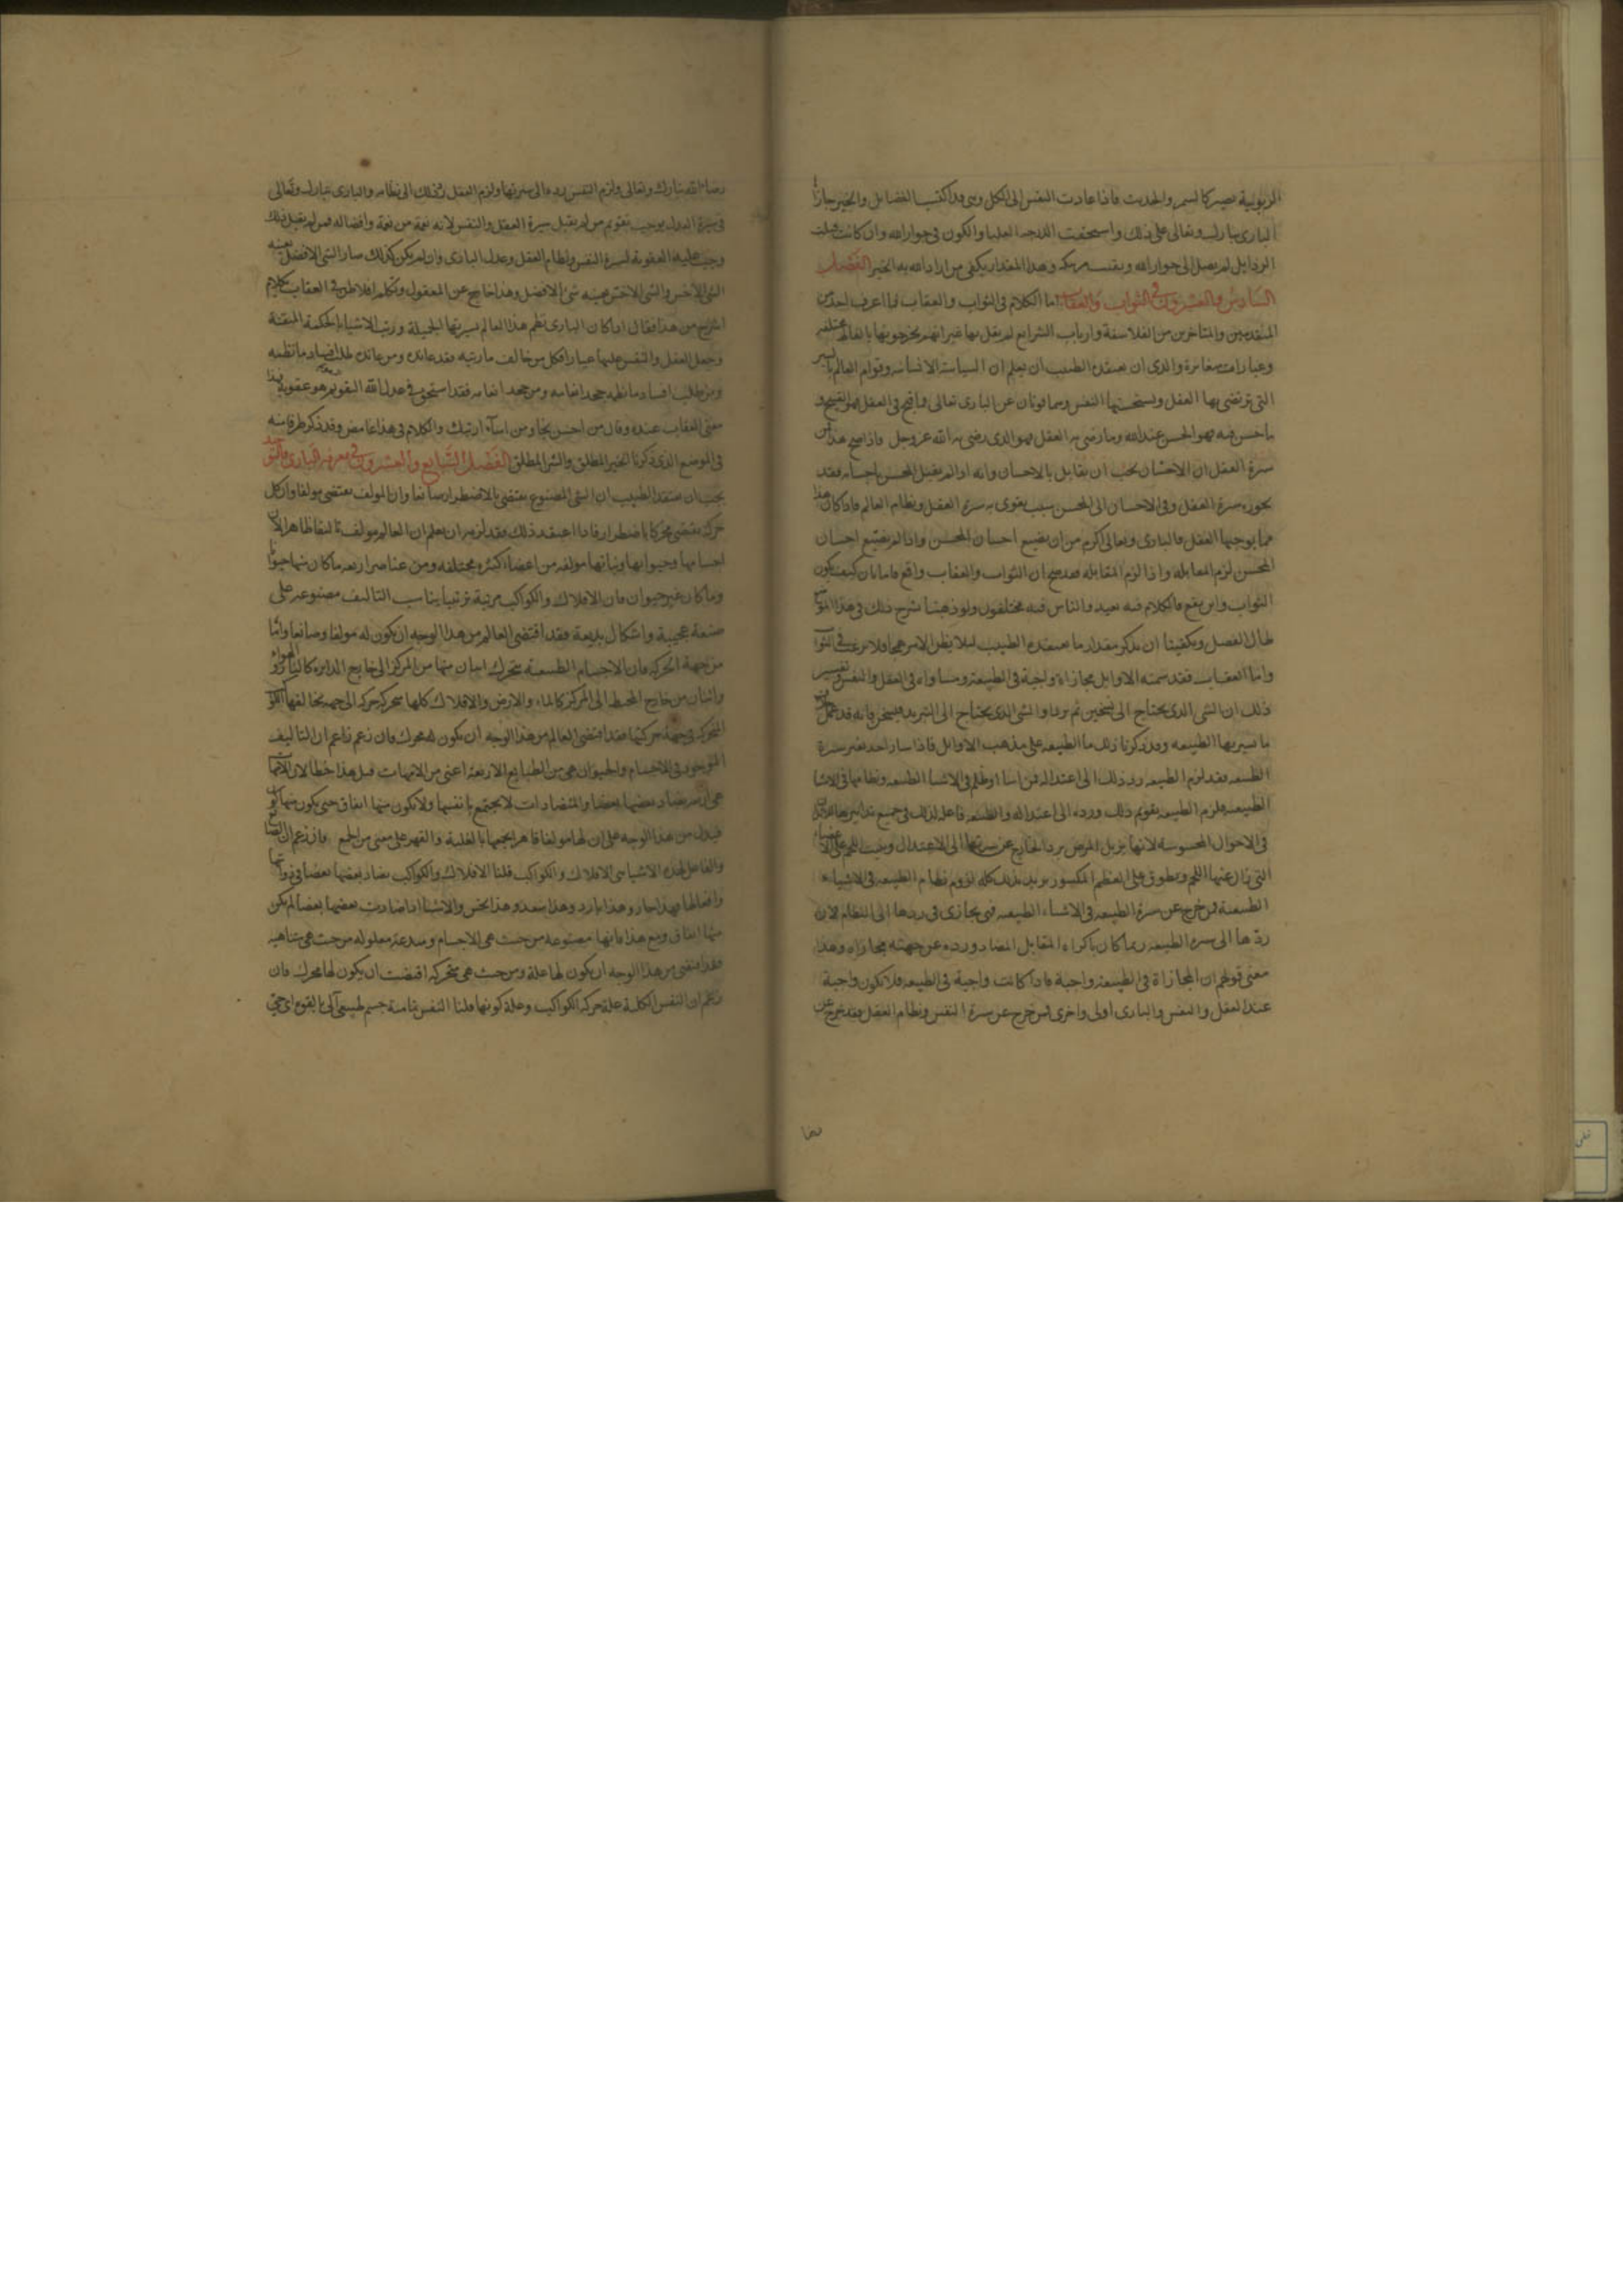 الربوبية بصير كالسم والحديث فاذا عادت النفس الى الكل وهي قد اكتسبت الفضايل والخير جازا
البارى تبارك وتعالى على ذلك واستحقت الدرجه العليا والكون فى جوار الله وان كانت قبلت
الرذايل لم تصل الى جوار الله وبقيت وهذا المقدار يكفى من اراد الله به الخير الفصل
السادس والعشرون فى الثواب والعقاب اما الكلام فى الثواب والعقاب فما اعرف احد من
المتقدمين والمتاخرين من الفلاسفة وارباب الشرايع لم يقل بها غير انهم يخرجونها بالفاظ مختلفه
وعبارات متغايرة والذى ان يعتقده الطبيب ان يعلم ان السياسة الانسانيه وقوام العالم
التى يرتضى بها العقل ويستحسنها النفس وهما قوتان عن البارى تعالى وما قبح فى العقل فهو القبيح و
ما حسن فيه فهو الحسن عند الله وما رضى به العقل فهو الذى رضى به الله عز وجل فاذا صح هذا فمن
سيرة العقل ان الاحسان يجب ان يقابل بالاحسان وانه اذا لم يقبل المحسن احسانه فقد
يجوز سيرة العقل وفى الاحسان الى المحسن سبب يقوى به سيرة العقل ونظام العالم فاذا كان هذا
مما يوجبها العقل فالبارى وتعالى اكرم من ان يضيع احسان المحسن واذا لم يضيع احسان
المحسن لزم المقابله واذا لزم المقابله فقد صح ان الثواب والعقاب واقع فاما بان كيف يكون
الثواب واين يقع فالكلام فيه بعيد والناس فيه مختلفون ولو ذهبنا نشرح ذلك فى هذا الموضع
طال الفصل ويكفينا ان نذكر مقدار ما يعتقده الطبيب ليلا يظن الامر فلا يرغب فى الثواب
واما العقاب فقد سمته الاوايل مجازاة واجبة فى الطبيعة ومساواه فى العقل والنفس وتفسير
ذلك ان الشى الذى يحتاج الى تسخين ثم برد او الشى الذى يحتاج الى التبريد فيسخن فانه قد
ما تسير بها الطبيعه وقد ذكرنا ذلك ما الطبيعه على مذهب الاوايل فاذا سار احد بغير سيرة
الطبيعه فقد لزم الطبيعه رد ذلك الى اعتداله فمن اسا او ظلم فى الاشيا الطبيعه ونظامها فى الاشيا
الطبيعيه فلزم الطبيعه تقويم ذلك ورده الى اعتداله والطبيعه فاعله لذلك فى جميع تدابيرها
فى الاحوال المحسوسة لانها تزيل المرض برد الخارج عن سيرتها الى الاعتدال وينبت اللحم على الاعضاء
التى زال عنها اللحم ويطوق على العظم المكسور يريد بذلك كله لزوم نظام الطبيعه فى الاشياء
الطبيعية فمن خرج عن سيرة الطبيعه فى الاشياء الطبيعيه فهى تجازى فى ردها الى النظام لان
ردها الى سيره الطبيعه ربما كان باكراه المقابل المضاد ورده عن جهته مجازاه وهذا
معنى قولهم ان المجازاة فى الطبيعة واجبة فاذا كانت واجبة فى الطبيعه فلا تكون واجبة
عند العقل والنفس والبارى اولى واحرى فمن خرج عن سيرة النفس ونظام العقل فقد خرج عن
رضا
رضا الله تبارك وتعالى ولزم النفس رده الى سيرتها ولزم العقل رد ذلك الى نظامه والبارى تبارك وتعالى
فى سيرة العدل يوجب تقويم من لم يقبل سيرة العقل والنفس لانه نعمة من نعمه وافضاله فمن لم يقبل ذلك
وجبت عليه العقوبة لسيرة النفس ونظام العقل وعدل البارى وان لم يكن كذلك صار الشى الافضل بعينه
الشى الاخس والشى الاخس بعينه شى الافضل وهذا خارج عن المعقول وتكلم افلاطن فى العقاب بكلام
اشرح من هذا فقال اذا كان البارى نظم هذا العالم بسيرتها الجميلة ورتب الاشياء بالحكمة المتقنة
وجعل العقل والنفس عليها عيارا فكل من خالف ما رتبه فقد عانده ومن عانده طلب افساد ما نظمه
ومن طلب افساد ما نظمه جحد انعامه ومن جحد انعامه فقد استحق فى عدل الله التقويم هو عقوبة هذا
معنى العقاب عنده وقال من احسن نجا ومن اساء ارتبك والكلام فى هذا غامض وقد ذكر طرفا منه
فى الموضع الذى ذكرنا الخير المطلق والشر المطلق الفصل السابع والعشرون فى معرفة البارى والتوحيد
يجب ان يعتقد الطبيب ان الشى المصنوع يقتضى بالاضطرار صانعا وان المولف يقتضى مولفا وان كل
حركة تقتضى محركا باضطرار فاذا اعتقد ذلك فقد لزمه ان يعلم ان العالم مولف تاليفا ظاهرا لان
اجسامها وحيوانها ونباتها مولفه من اعضاء كثيره مختلفه ومن عناصر اربعه ما كان منها حيوانا
وما كان غير حيوان فان الافلاك والكواكب مرتبة ترتيبا يناسب التاليف مصنوعه على
صنعة عجيبة واشكال بديعة فقد اقتضى العالم من هذا الوجه ان يكون له مولفا وصانعا واما
من جهة الحركه فان الاجسام الطبيعية تتحرك اثنان منها من المركز الى خارج الدايره كالنار والهواء
واثنان من خارج المحيط الى المركز كالماء والارض والافلاك كلها متحركه حركه الى جهه يخالفها
المتحركه فى جهة حركتها فقد اقتضى العالم من هذا الوجه ان يكون له محرك فان زعم زاعم ان التاليف
الموجود فى الاجسام والحيوان هى من الطبايع الاربعة اعنى من الامهات قيل هذا خطا لان الامهات
هى اربعه يضاد بعضها بعضا والمتضادات لا تجتمع بانفسها ولا يكون منها اتفاق حتى يكون منها
فيدل من هذا الوجه على ان لها مولفا قاهرا يجمعها بالغلبة والقهر على معنى من الجمع فان زعم ان الصانع
والفاعل لهذه الاشيا هى الافلاك والكواكب قلنا الافلاك والكواكب يضاد بعضها بعضا فى ذواتها
وافعالها فهذا حار وهذا بارد وهذا سعد وهذا نحس والاشيا اذا ضادت بعضها بعضا لم يكن
منها اتفاق ومع هذا فانها مصنوعة من حيث هى الاجسام ومبدعة معلوله من حيث هى متناهيه
فقد اقتضى من هذا الوجه ان يكون لها علة ومن حيث هى متحركه اقتضت ان يكون لها محرك فان
زعم ان النفس الكلية علة حركه الكواكب وعلة كونها قلنا النفس تمامية جسم طبيعى آلى بالقوة ذى حيوة